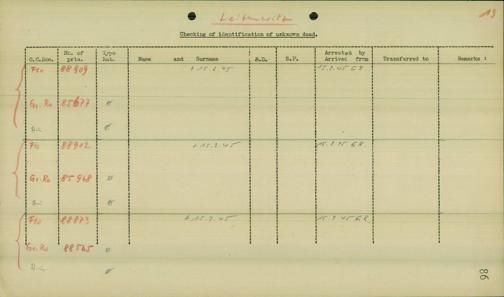 Leitmeritz
19
Checking of identification of unknown dead.
C.C.Don. No. of pris. Type Nat. Name and Surname B.D. B.P. Arrested by Arrived from Transferred to Remarks :
Flo 88909 + 15.2.45 15.2.45 G.R.
Gr. Ro 85677 "
"
Flo 88912 + 15.2.45 15.2.45 G.R.
Gr. Ro 85948 "
"
Flo 88873 + 15.2.45 15.2.45 G.R.
Gr. Ro 88545 "
"
86